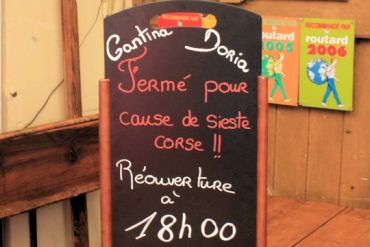 RECOMMANDÉ PAR
Cantina Doria
Fermé pour
cause de sieste
corse !!
Réouverture
à
18h00
routard
2005
RECOMMANDÉ PAR
le
routard
2006